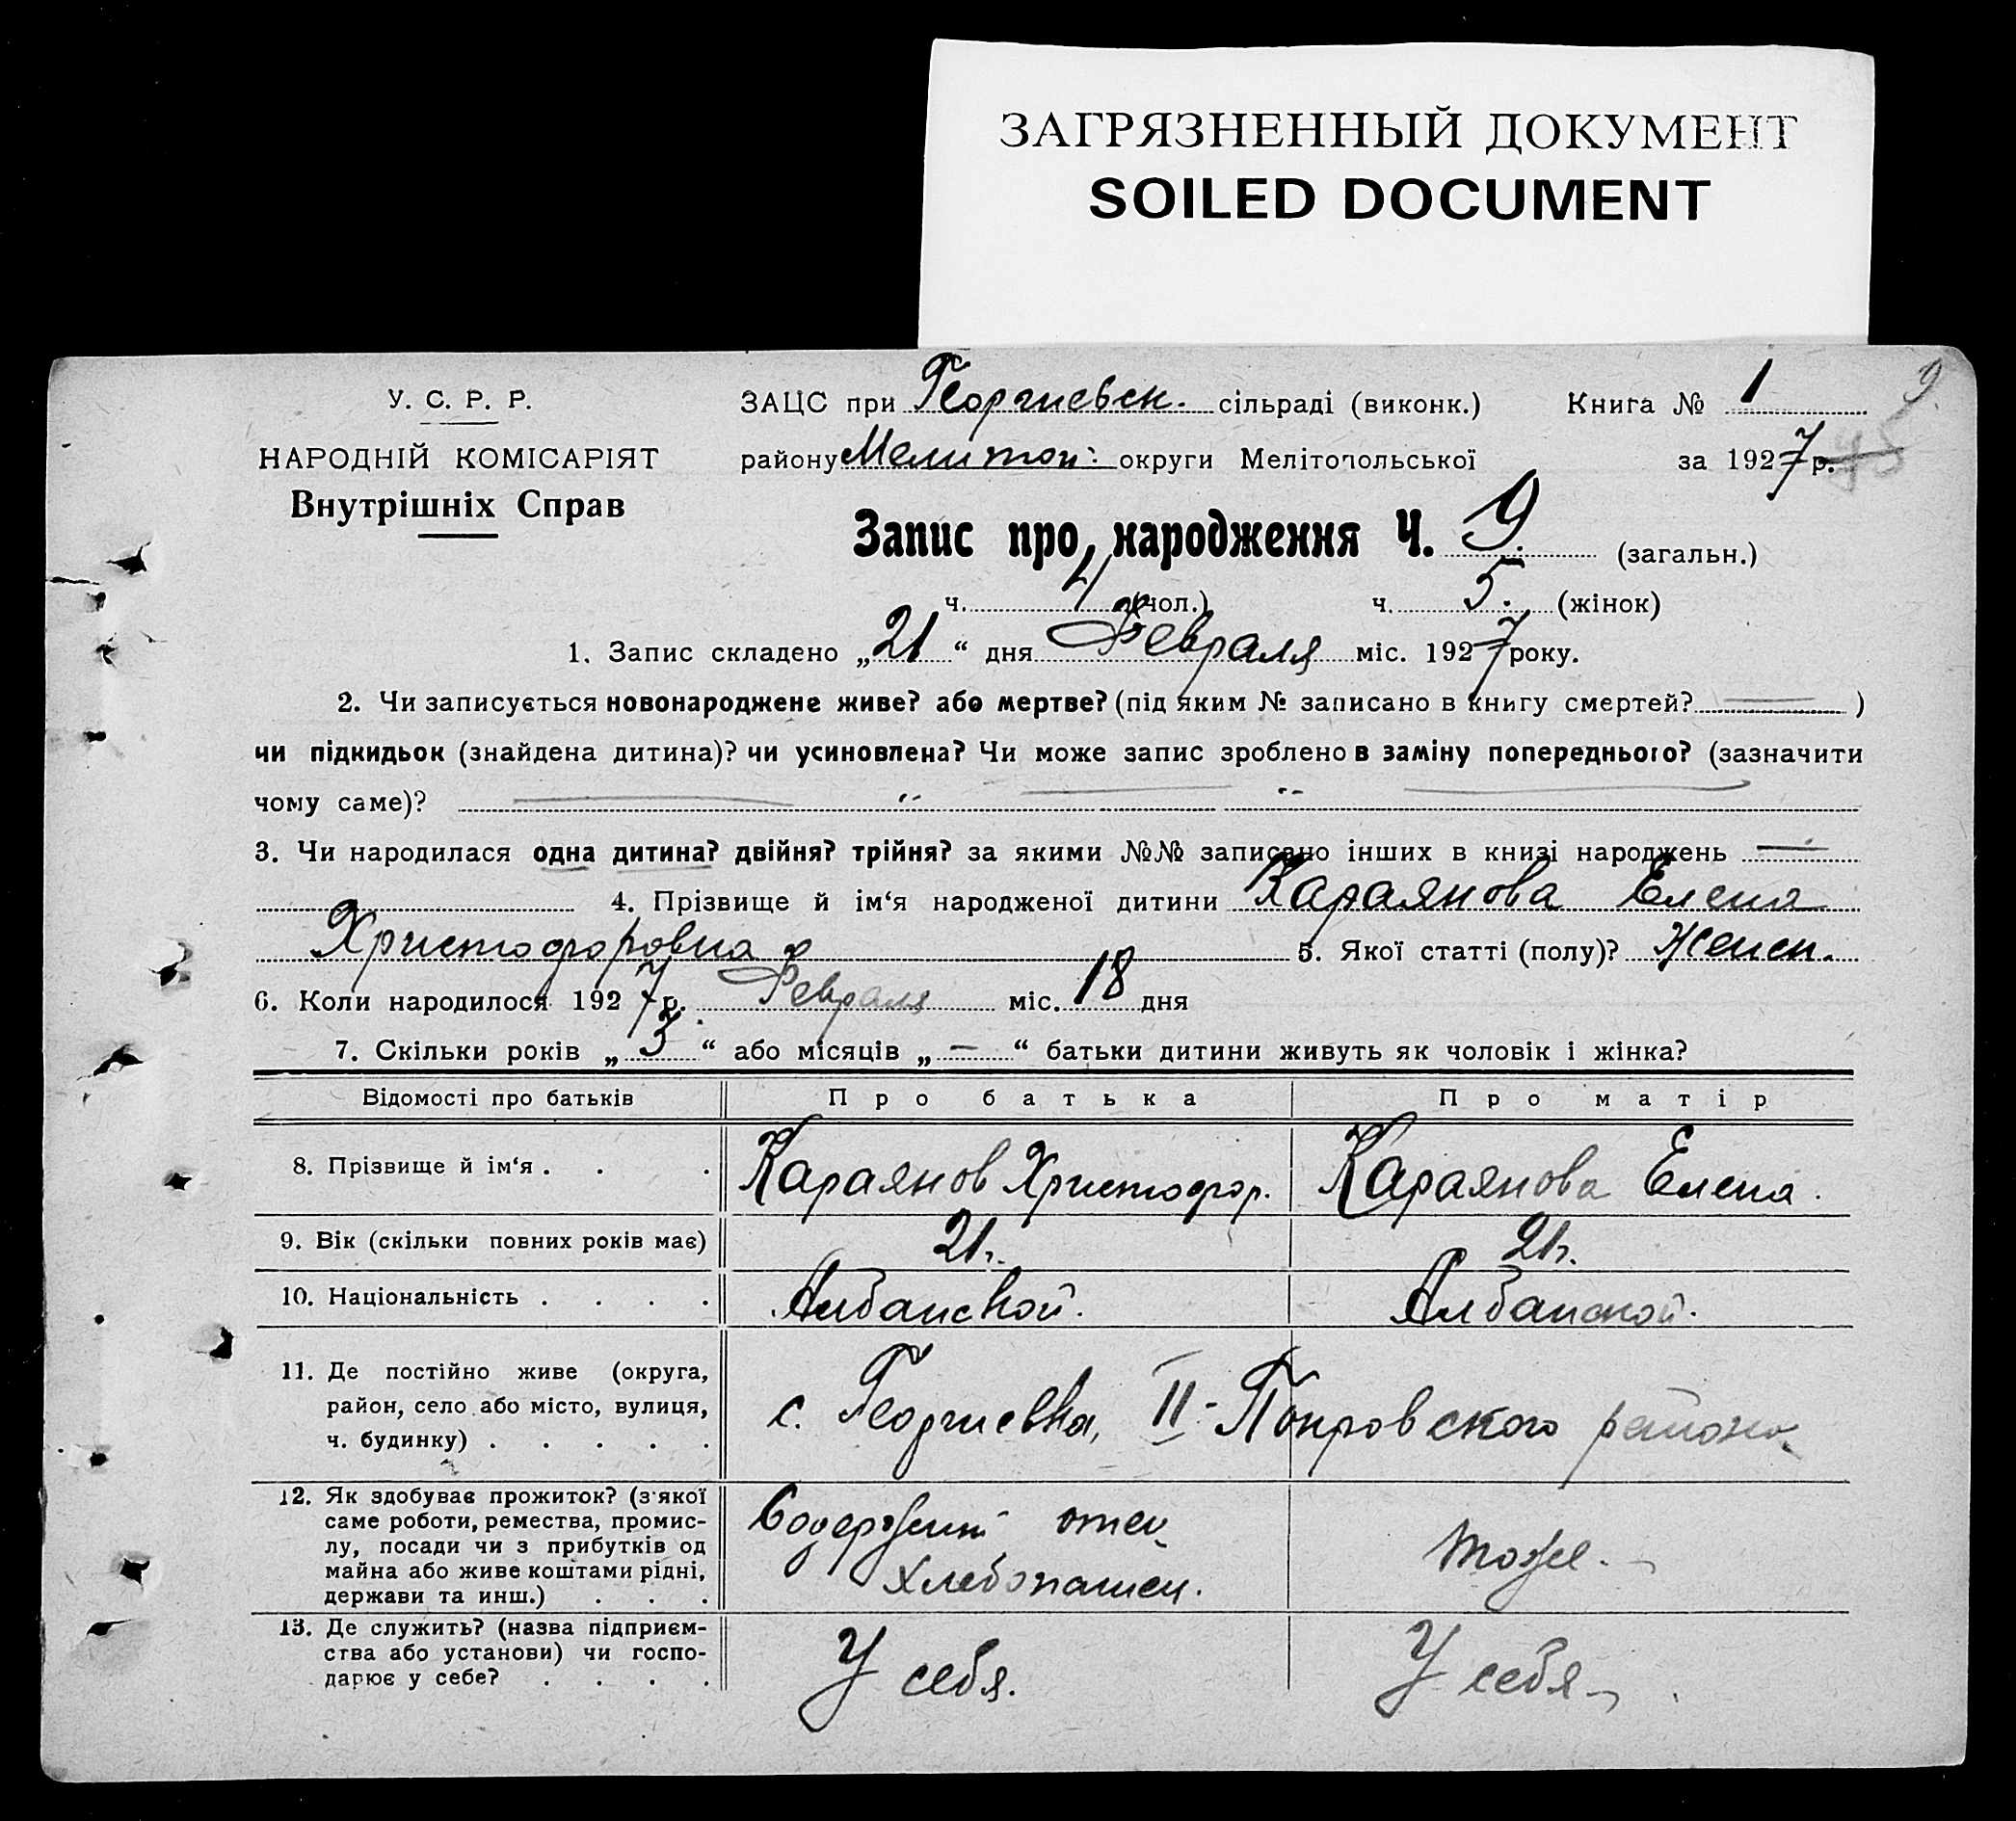 ЗАГРЯЗНЕННЫЙ ДОКУМЕНТ
SOILED DOCUMENT
У. С. Р. Р.
НАРОДНІЙ КОМІСАРІЯТ
Внутрішніх Справ
ЗАЦС при Георгиевск. сільраді (виконк.) Книга № 1 9.
району Мелитоп. округи Мелітопольської за 1927 р.
Запис про народження Ч. 9. (загальн.)
ч. 4 (чол.) ч. 5. (жінок)
1. Запис складено „21“ дня Февраля міс. 1927 року.
2. Чи записується новонароджене живе? або мертве? (під яким № записано в книгу смертей? — )
чи підкидьок (знайдена дитина)? чи усиновлена? Чи може запис зроблено в заміну попереднього? (зазначити
чому саме)? — „ — „ —
3. Чи народилася одна дитина? двійня? трійня? за якими №№ записано інших в книзі народжень —
4. Прізвище й ім‘я народженої дитини Караянова Елена
Христофоровна 5. Якої статті (полу)? Женск.
6. Коли народилося 1927 р. Февраля міс. 18 дня
7. Скільки років „3“ або місяців „—“ батьки дитини живуть як чоловік і жінка?
Відомості про батьків Про батька Про матір
8. Прізвище й ім‘я . . . Караянов Христофор. Караянова Елена.
9. Вік (скільки повних років має) 21 г. 21 г.
10. Національність . . . . Албанской. Албанской.
11. Де постійно живе (округа,
район, село або місто, вулиця,
ч. будинку) . . . . .
с. Георгиевка, II-Покровского района
12. Як здобуває прожиток? (з якої
саме роботи, ремества, промис-
лу, посади чи з прибутків од
майна або живе коштами рідні,
держави та инш.) . . .
Содержит отец
хлебопашец.
тоже.
13. Де служить? (назва підприєм-
ства або установи) чи госпо-
дарює у себе? . . . .
У себя.
У себя